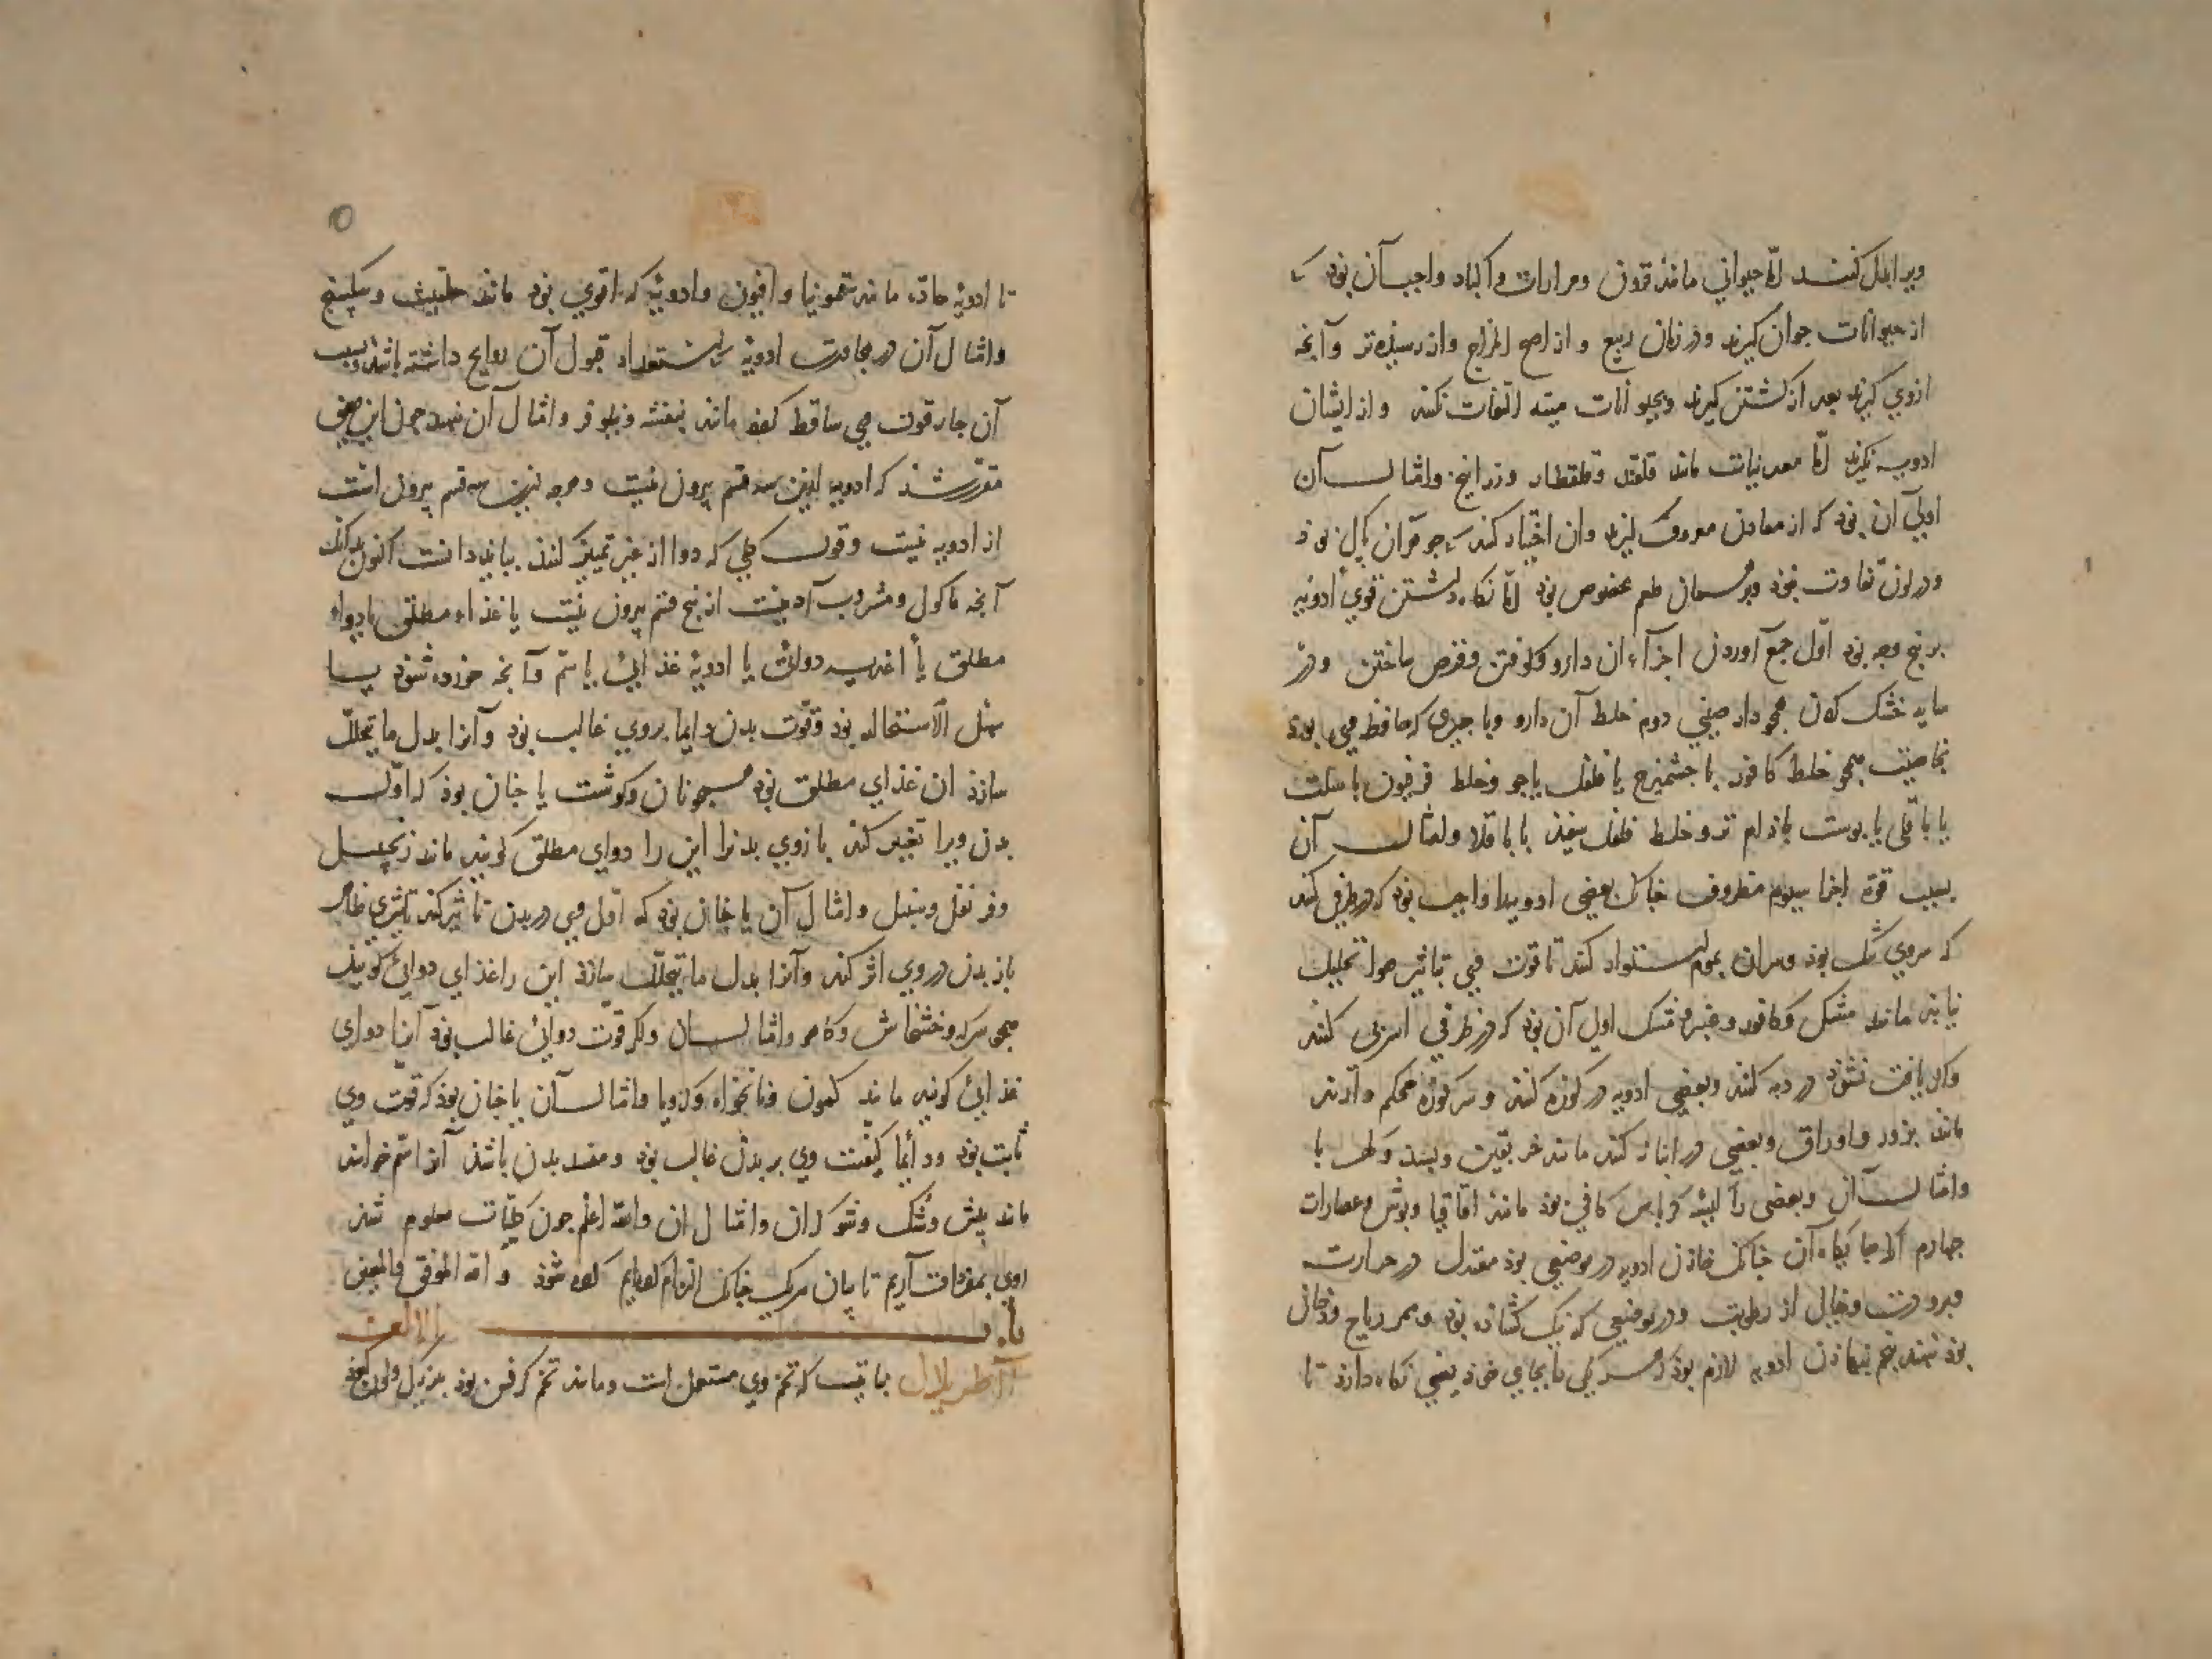 ویرا بدل کنند امّا حیوانی مانند قرون و مرارات و اکباد واجب آن بوذ ک
از حیوانات جوان کیرند و در زمان ربیع و از اصح المزاج و از رسیذه تر و آنچه
ازوی کیرند بعد از کشتن کیرند و بحیوانات میته التفات نکنند و از ایشان
ادویه نکیرند امّا معدنیات مانند قلقند و قلقطار و زرانیخ و امثال آن
اولی آن بوذ که از معادن معروف کیرند و ان اختیار کنند که جوهر آن پاک بوذ
و در لون تفاوت نبوذ و بر همان طعم مخصوص بوذ امّا نکاه داشتن قوی ادویه
بر پنج وجه بوذ اوّل جمع آوردن اجزاء ان دارو و کوفتن و قرص ساختن و در
سایه خشک کردن همچو دارصینی دوم خلط آن دارو با چیزی که حافظ وی بوذ
بخاصیت همچو خلط کافور با جشمیزج یا فلفل یا جو و خلط فرفیون با
یا باقلی یا پوست باذام تر و خلط فلفل سفیذ با باقلا و امثال آن
بسبب قوة اجزا سیوم مظروف چنانک بعضی ادویه را واجب بوذ که در ظرفی کنند
که سروی تنک بوذ و سران بموم استوار کنند تا قوت وی بتاثیر هوا تحلیل
نیابذ مانند مشک و کافور و عنبر و مشک اولی آن بوذ که در ظرفی اسربی کنند
و اکر یافت نشوذ در دبه کنند و بعضی ادویه در کوزه کنند و سر کوزه محکم دارند
مانند بزور و اوراق و بعضی در انبانه کنند مانند خربقین و
و امثال آن و بعضی را کیسه کرباس کافی بوذ مانند اقاقیا و بوش و عصارات
چهارم آنک جایکاه آن چنانک خازن ادویه در موضعی بوذ معتدل در حرارت
و برودت و خالی از رطوبت و در موضعی که نیک کشاذه بوذ و ممر ریاح و دخان
بوذ ننهند پنجم نهاذن ادویه لازم بوذ که هر یکی را بجای خوذ یعنی نکاه دارذ تا
تا ادویۀ حادّه مانند سقمونیا و افیون و ادویۀ که اقوی بوذ مانند حلتیت و سکبینج
و امثال آن در مجاورت ادویۀ که استعداد قبول آن روایح داشته باشذ و بسبب
آن مجاورت قوت وی ساقط کردد مانند بنفشه و نیلوفر و امثال آن ننهند چون این معنی
مقرّر شذ که ادویه ازین سه قسم بیرون نیست و هرچه ازین سه قسم بیرون است
از ادویه نیست و قول کلی که دوا از غیر تمییز کنند ببایذ دانست اکنون بدانک
آنچه ماکول و مشروب آدمیست از پنج قسم بیرون نیست یا غذاء مطلق یا دواء
مطلق یا اغذیه دوائی یا ادویۀ غذایی یا سمّ و آنچه خورده شوذ یا
سهل الاستحاله بوذ و قوّت بدن دایما بروی غالب بوذ و آنرا بدل ما یتحلّل
سازذ ان غذای مطلق بوذ همچو نان و کوشت یا چنان بوذ که اوّل
بدن ویرا تغییر کند باز وی بدنرا این را دوای مطلق کویند مانند زنجبیل
و قرنفل و سنبل و امثال آن یا چنان بوذ که اوّل وی در بدن تاثیر کند تاثیری ظاهر
باز بدن در وی اثر کند و آنرا بدل ما یتحلّل سازذ این را غذای دوائی کویند
همچو سرکه و خشخاش و کاهو و امثال آن و اکر قوّت دوائی غالب بوذ آنرا دوای
غذائی کویند مانند کمون و نانخواه و کرویا و امثال آن یا چنان بوذ که قوّت وی
ثابت بوذ و دایما کیفیت وی بر بدن غالب بوذ و مفسد بدن باشذ آنرا سمّ خوانند
مانند بیش و شک و شوکران و امثال ان والله اعلم چون کلیّات معلوم شذ
روی بمفردات آریم تا بیان مرکب چنانک التزام کرده ایم کرده شوذ و الله الموفق و المعین
باب الالف
آاطریلال نباتیست که تخم وی مستعمل است و مانند تخم کرفس بوذ